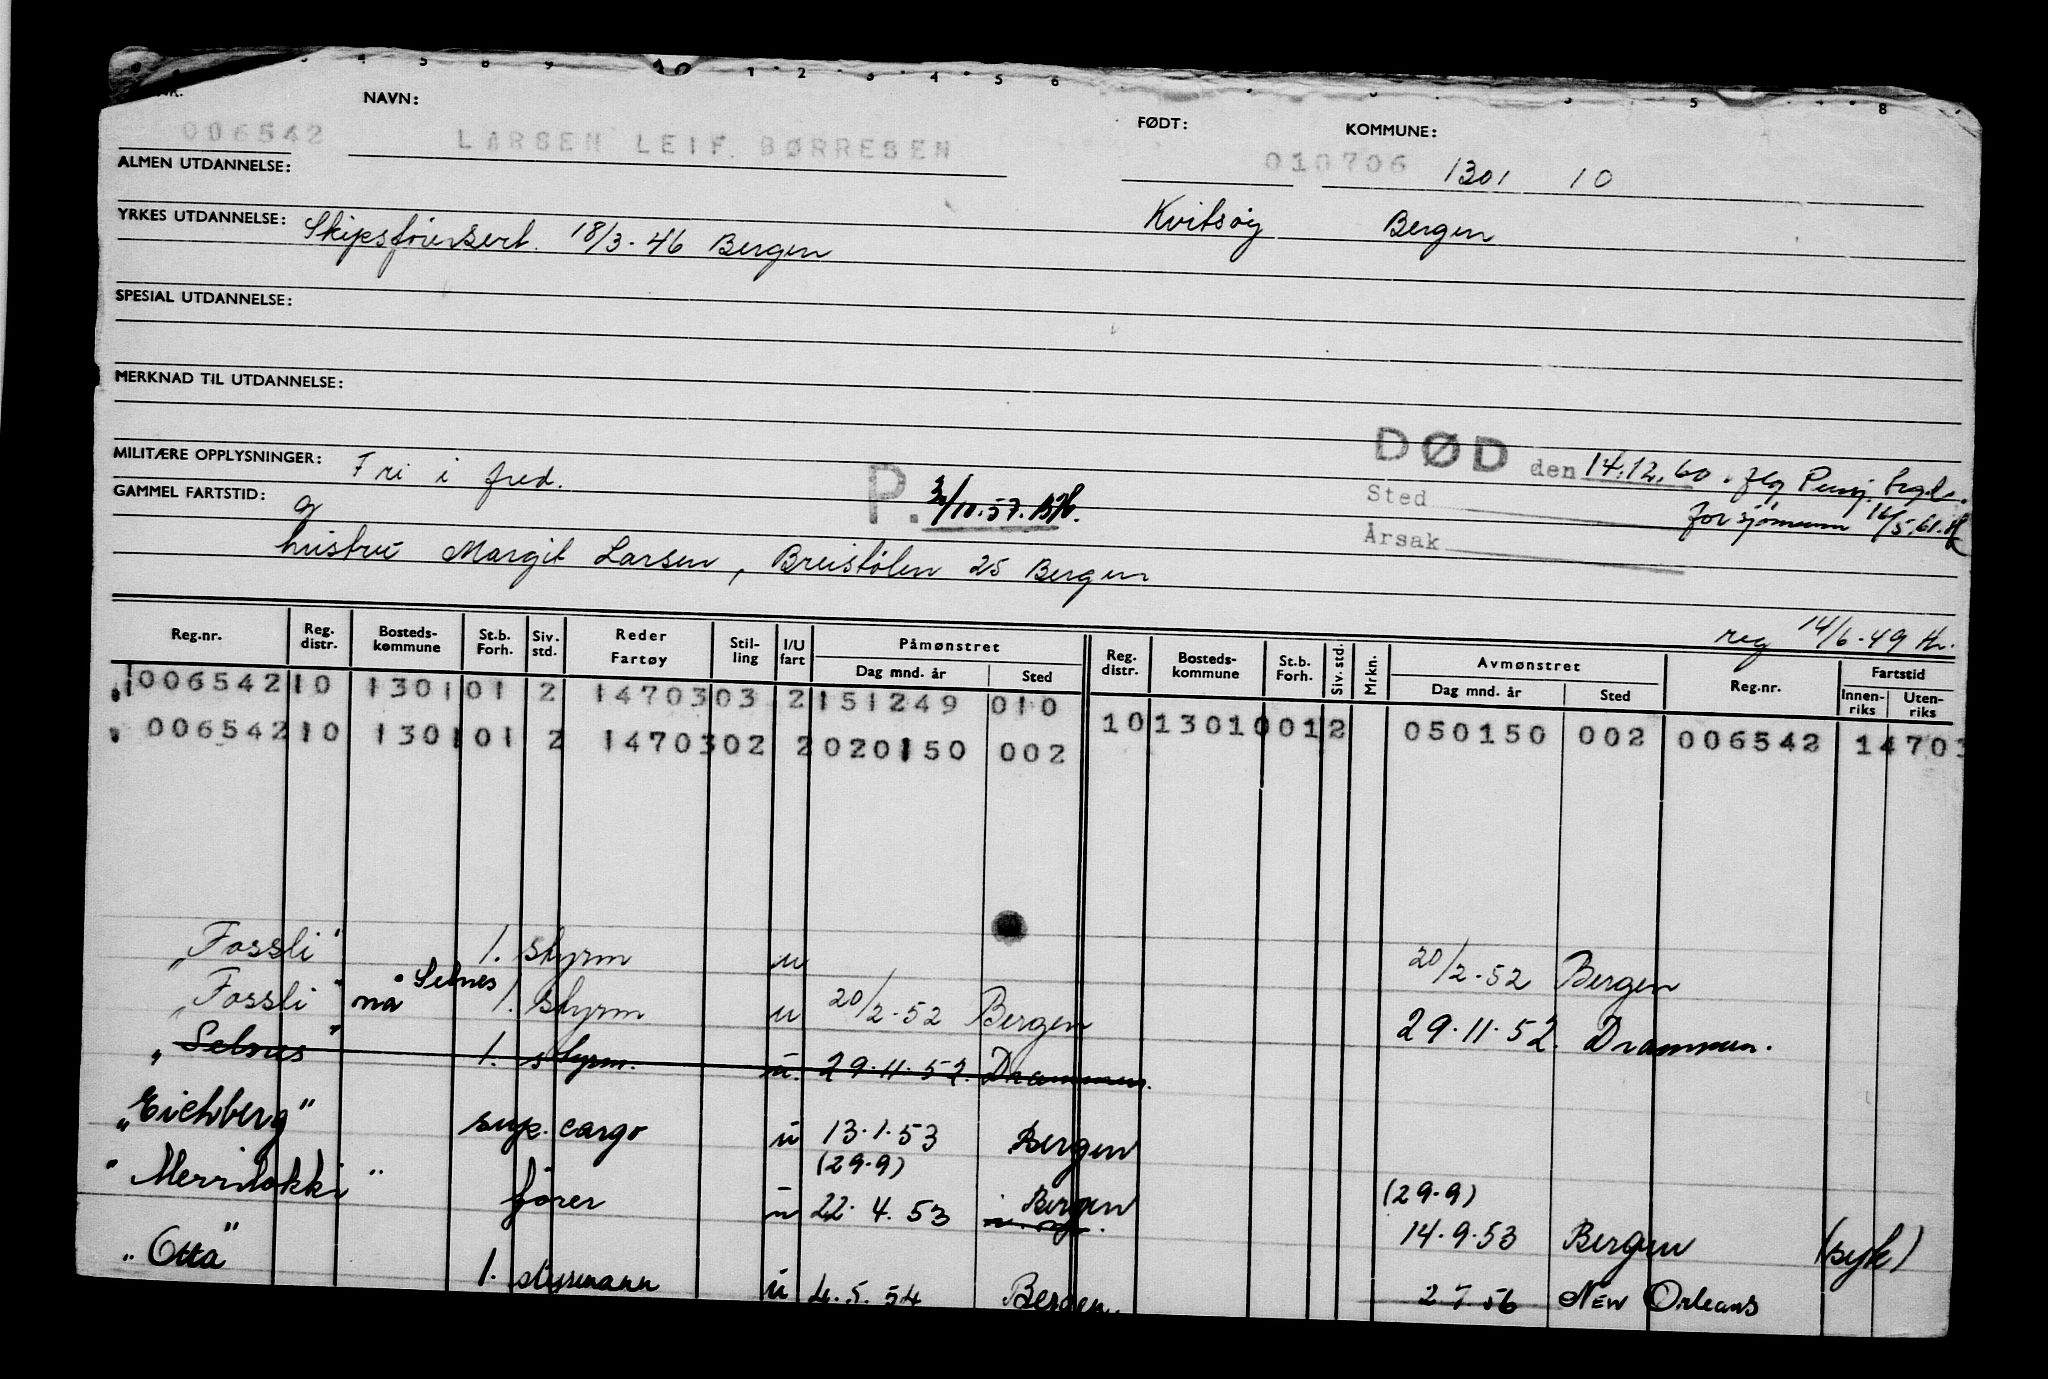 NAVN: FØDT: KOMMUNE:
006542 LARSEN LEIF BØRRESEN 010706 1301 10
ALMEN UTDANNELSE:
YRKES UTDANNELSE: Skipsførersert. 18/3-46 Bergen Kvitsøy Bergen
SPESIAL UTDANNELSE:
MERKNAD TIL UTDANNELSE:
MILITÆRE OPPLYSNINGER: Fri i fred. P. DØD den 14.12.60.
Sted for sjømenn 16/5.61.
GAMMEL FARTSTID: g Årsak
hustru Margit Larsen, Breistølen 25 Bergen
reg 14/6-49 Hr.
Reg.nr. Reg. distr. Bosteds-kommune St.b. Forh. Siv. std. Reder Fartøy Stil-ling I/U fart Påmønstret Dag mnd. år Sted Reg. distr. Bosteds-kommune St.b. Forh. Siv. std. Mrkn. Avmønstret Dag mnd. år Sted Reg.nr. Fartstid Innen-riks Uten-riks
006542 10 1301 01 2 147030 3 2 151249 010
006542 10 1301 01 2 147030 2 2 020150 002 10 1301 0 01 2 050150 002 006542 14703
"Fossli" 1. styrm u 20/2-52 Bergen
"Fossli" nå "Selnes 1. styrm u 20/2-52 Bergen 29.11.52. Drammen.
"Selnes" 1. styrm. u. 29.11.52. Drammen.
"Eichberg" sup. cargo u 13.1.53 Bergen
(29.9) (29.9)
"Merrilokki" fører u 22.4.53 Bergen 14.9.53 Bergen (syk)
"Otta" 1. styrmann u 4.5.54 Bergen. 2 7 56 New Orleans